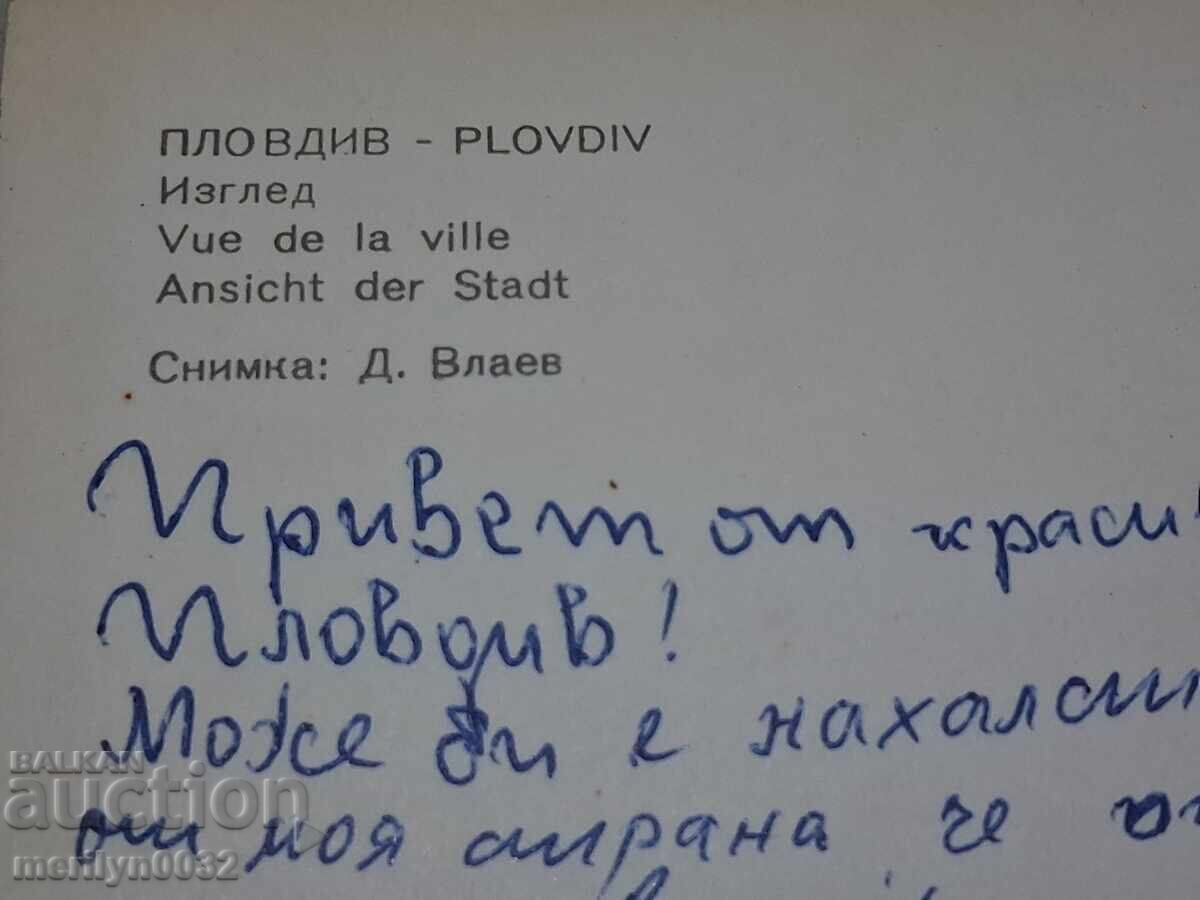 ПЛОВДИВ - PLOVDIV
Изглед
Vue de la ville
Ansicht der Stadt
Снимка: Д. Влаев
Привет от краси
Пловдив!
Може би е
от моя страна че
BALKAN
auction
merilyn0032